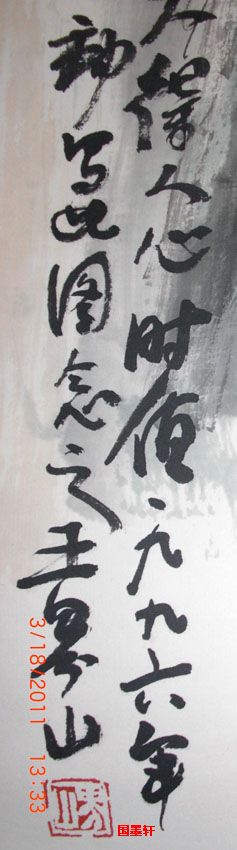 人心时值一九九六年
写此图念之王界山
界山
3/18/2011 13:33
国墨轩